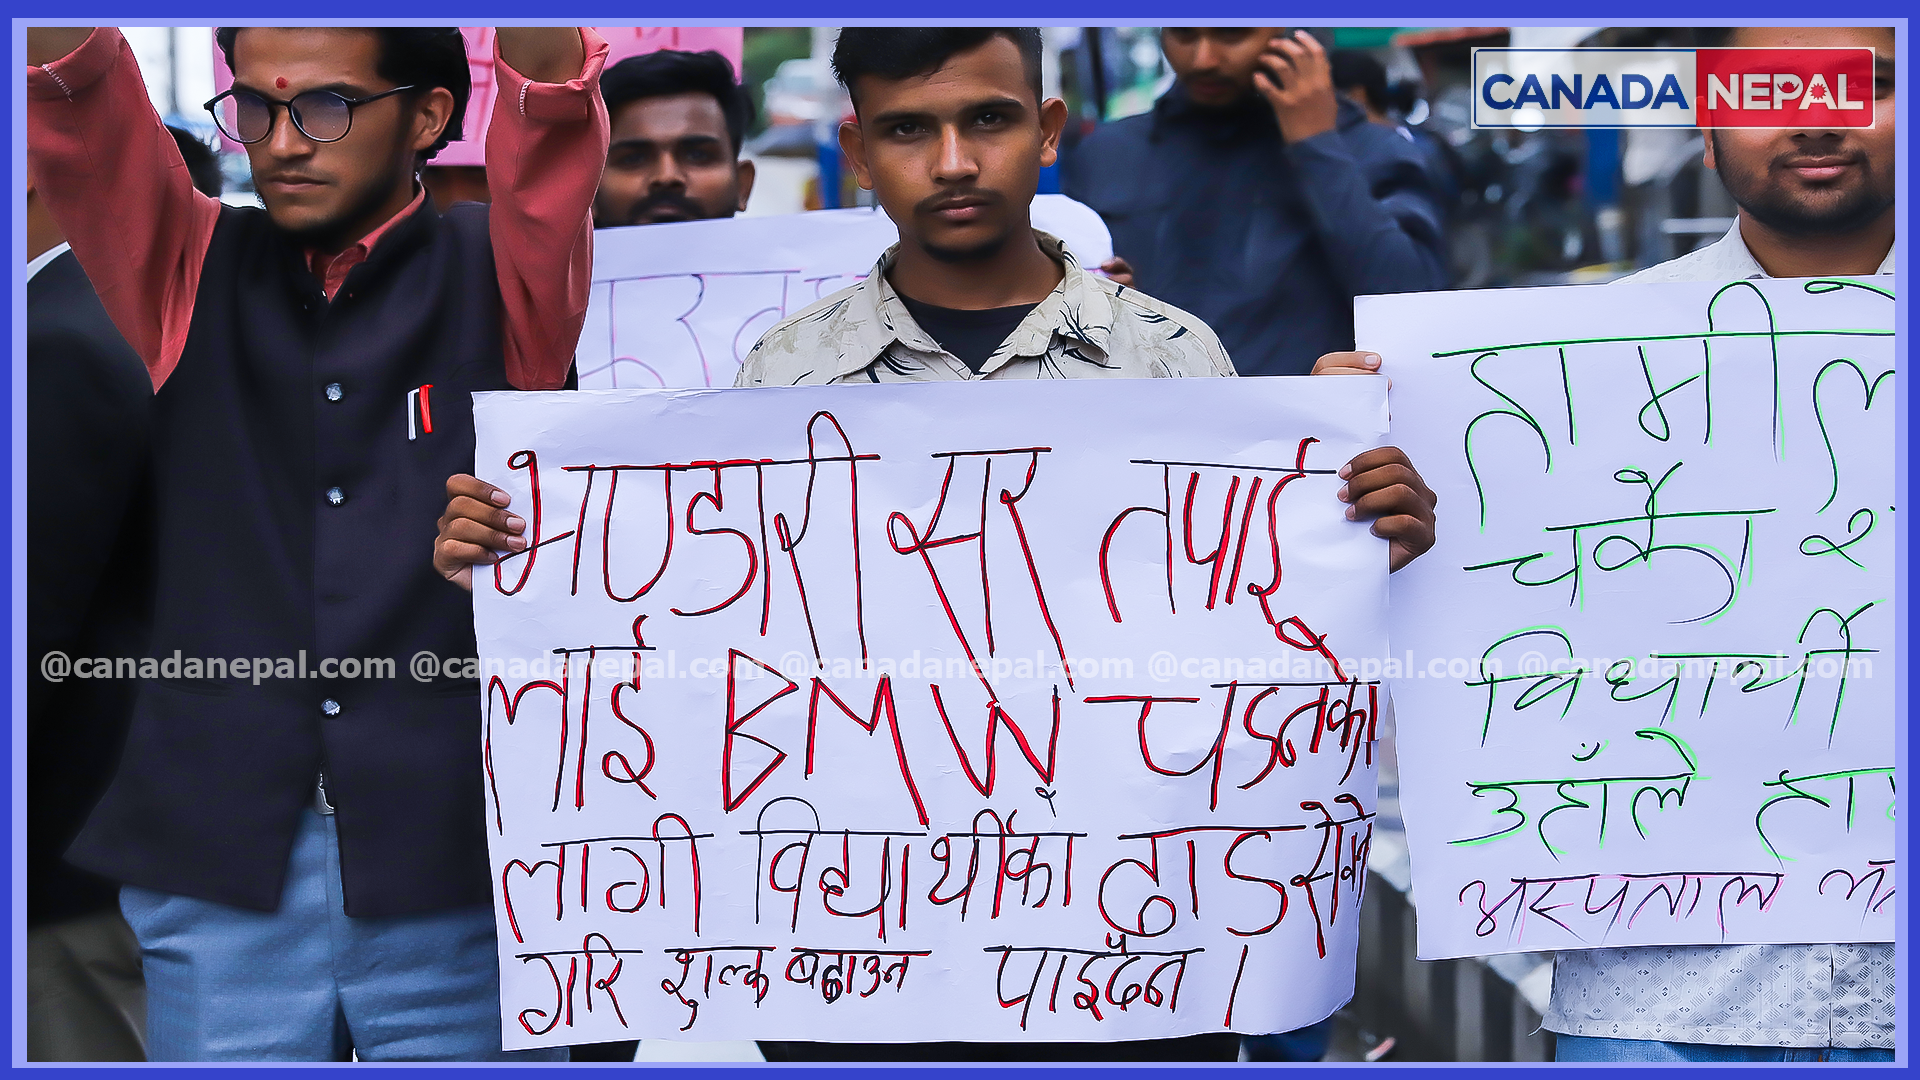 CANADA NEPAL
भण्डारी सर तपाई
लाई BMW चडनको
लागी विद्यार्थीका ढाड सेक्ने
गरि शुल्क बढाउन पाइदैन ।
हामीले
चर्को
विधार्थी
उहाँले
अस्पताल
@canadanepal.com @canadanepal.com @canadanepal.com @canadanepal.com @canadanepal.com